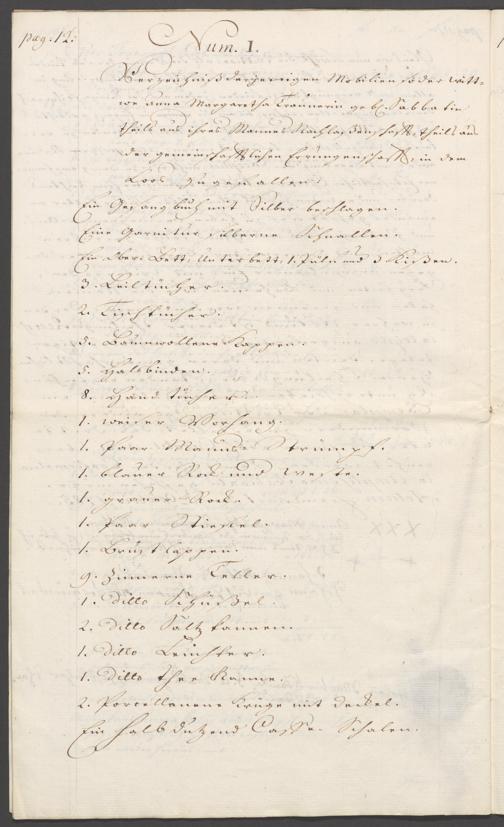 pag. 12.
Num. I.
Verzeichniß derjenigen Mobilien so der Witt-
we Anna Margaretha Trömnerin geb. Sabbatin
theils aus ihres Mannes Nachlaßenschafft, theils aus
der gemeinschafftlichen Errungenschafft, in dem
Loos zugefallen.
Ein Gesangbuch mit Silber beschlagen.
Eine Garnitur silberne Schnallen.
Ein Ober Bett, Unterbett, 1. Pülv und 3 Kißen.
3. Leiltücher.
2. Tischtücher.
3. Baumwollene Kappen.
5. Halsbinden.
8. Handtücher.
1. weiser Vorhang.
1. Paar Manns Strümpf.
1. blauer Rock und Weste.
1. grauer Rock.
1. Paar Stiefel.
1. Brustlappen.
9. Zinnerne Teller.
1. ditto Schüßel.
2. ditto Saltz kannen.
1. ditto Leuchter.
1. ditto Thee Kanne.
2. Porcellanene Krüge mit Deckel.
Ein halb dutzend Caffee Schalen.